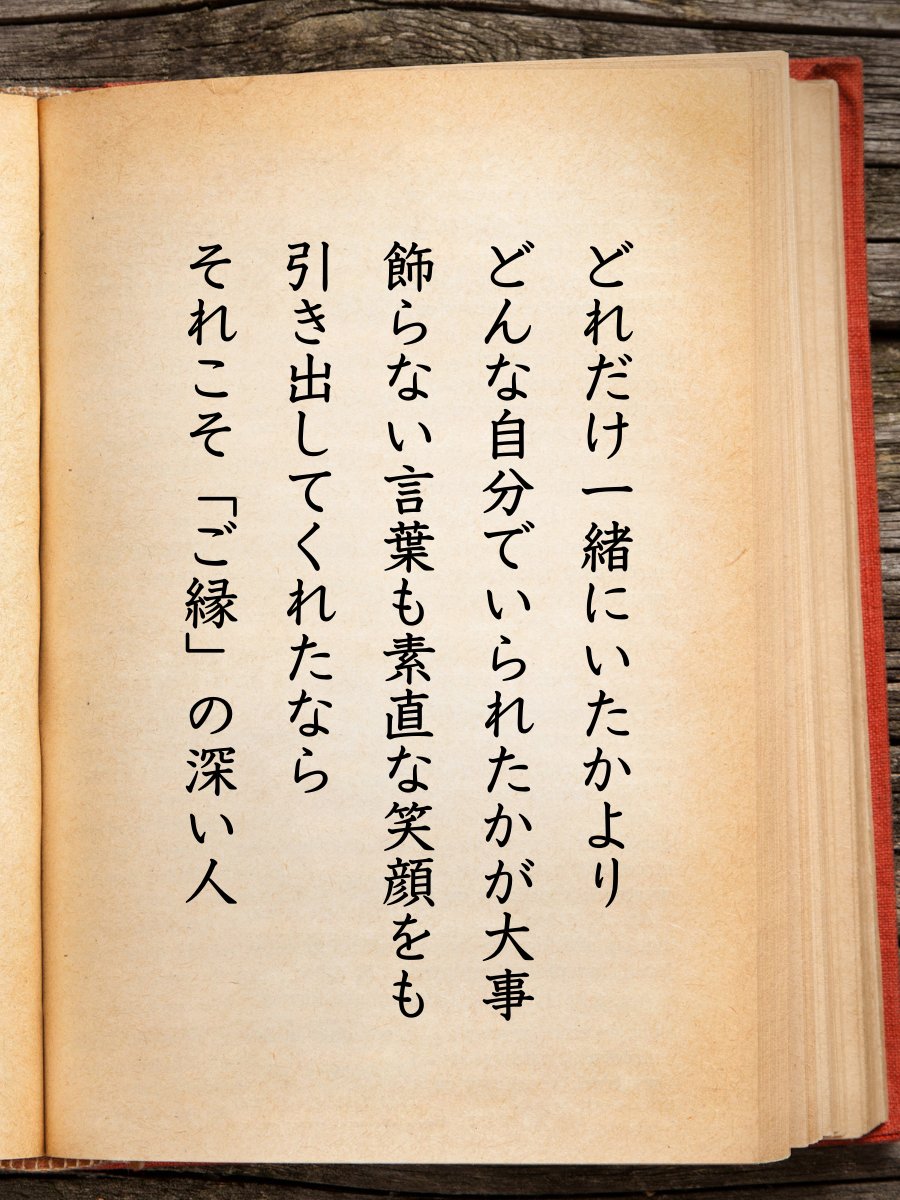 どれだけ一緒にいたかより
どんな自分でいられたかが大事
飾らない言葉も素直な笑顔をも
引き出してくれたなら
それこそ「ご縁」の深い人